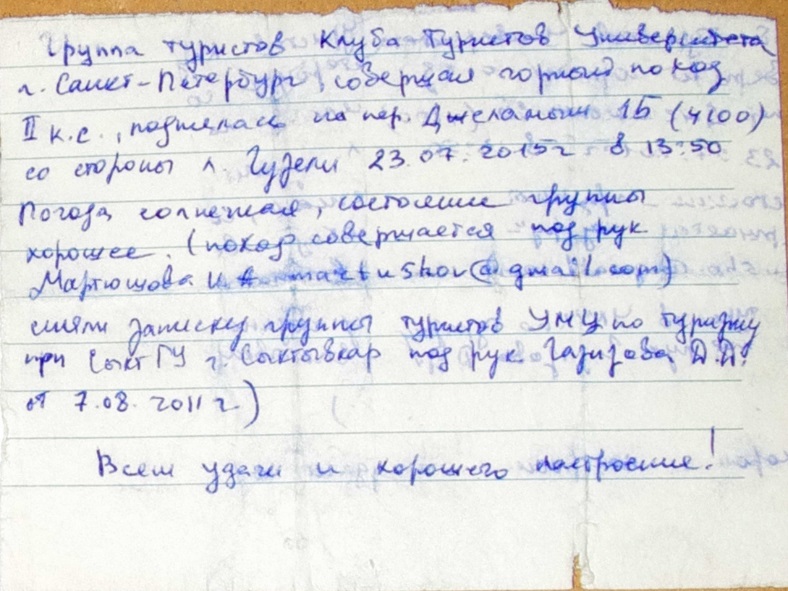 Группа туристов Клуба Туристов Университета
г. Санкт-Петербург, совершая горный поход
II к.с., поднялась на пер. Джеланыш 1Б (4100)
со стороны л Гузели 23.07.2015г в 13:50
Погода солнечная, состояние группы
хорошее. (поход совершается под рук
Мартюшова И martushov@gmail.com)
сняли записку группы туристов УМЦ по туризму
при СыктГУ г. Сыктывкар под рук. Газизова Д.Д.
от 7.08.2011г.)
Всем удачи и хорошего настроение!